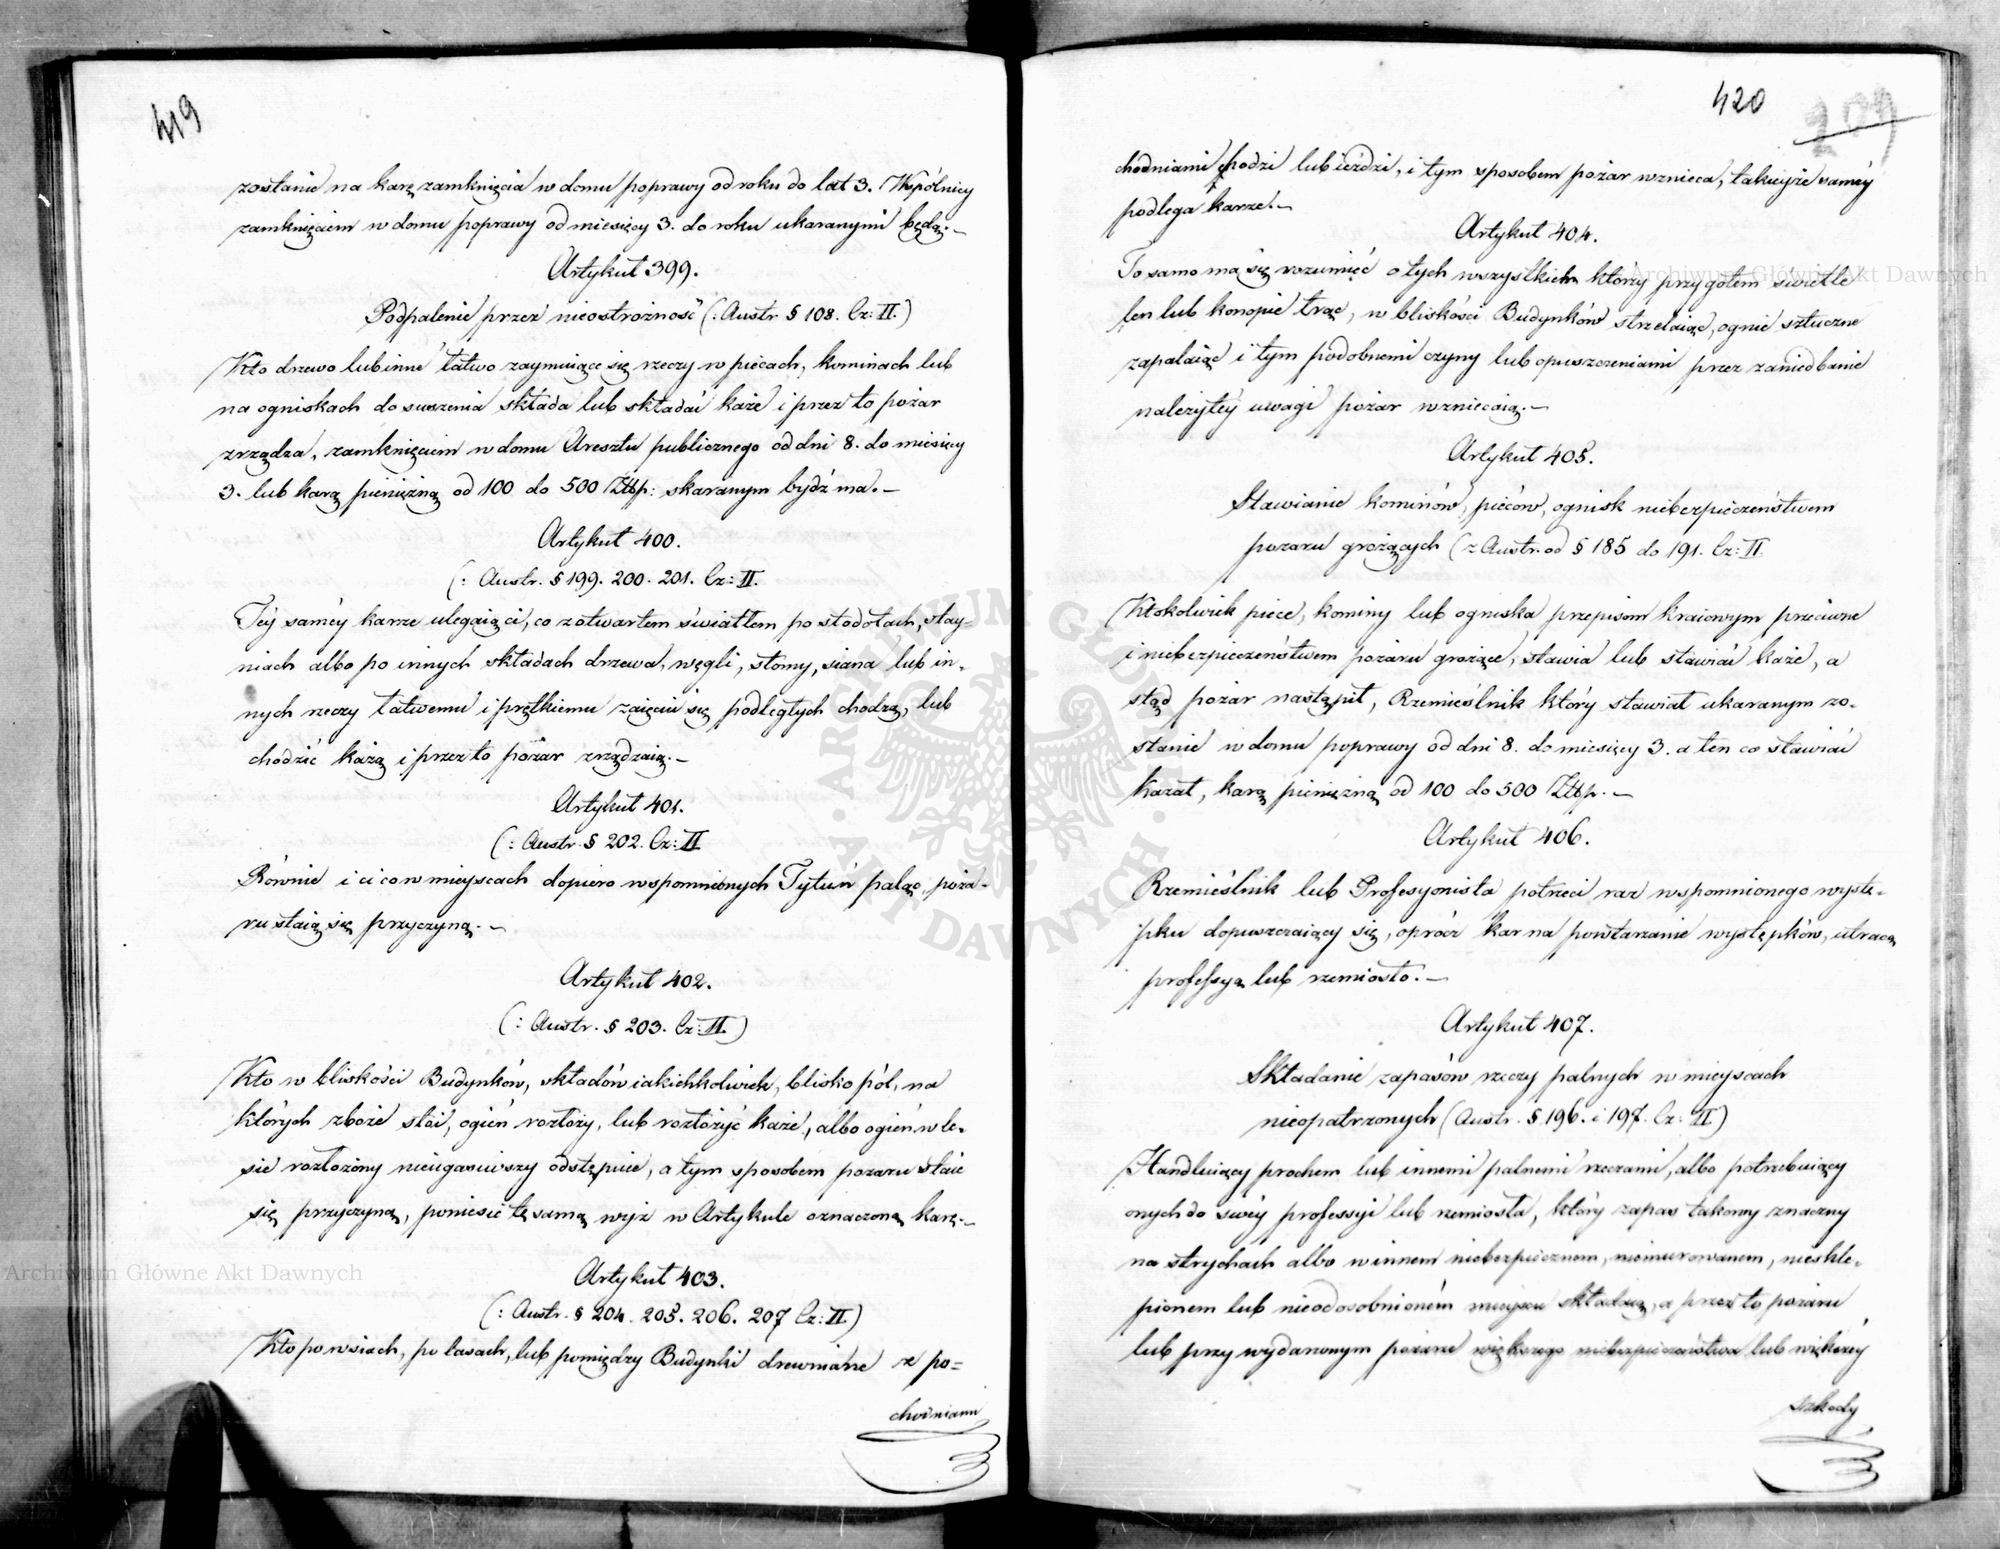 419
zostanie na karę zamknięcia w domu poprawy od roku do lat 3. Wspólnicy
zamknięciem w domu poprawy od miesięcy 3. do roku ukaranymi będą.—
Artykuł 399.
Podpalenie przez nieostrożność (: Austr. § 108. Cz: II.)
Kto drzewo lub inne łatwo zaymuiące się rzeczy w piecach, kominach lub
na ogniskach do suszenia składa lub składać każe i przez to pożar
zrządza, zamknięciem w domu Aresztu publicznego od dni 8. do miesięcy
3. lub karą pieniężną od 100 do 500 Złtp: skaranym bydź ma.—
Artykuł 400.
(: Austr. § 199. 200. 201. Cz: II.
Téy saméy karze ulegaią ci, co z otwartem światłem po stodołach, stay-
niach albo po innych składach drzewa, węgli, słomy, siana lub in-
nych rzeczy łatwemu i prętkiemu zaięciu się podległych chodzą, lub
chodzić każą i przez to pożar zrządzaią.—
Artykuł 401.
(: Austr. § 202. Cz: II
Równie i ci co w mieyscach dopiero wspomnionych Tytuń paląc, poża-
ru staią się przyczyną.—
Artykuł 402.
(: Austr. § 203. Cz: II.)
Kto w bliskości Budynków, składów iakichkolwiek, blisko pól, na
których zboże stoi, ogień rozłoży, lub rozłożyć każe, albo ogień w le-
sie rozłożony nieugasiwszy odstępuie, a tym sposobem pożaru staie
się przyczyną, poniesie tę samą wyż w Artykule oznaczoną karę.—
Artykuł 403.
(: Austr. § 204. 205. 206. 207 Cz: II.)
Kto po wsiach, po lasach, lub pomiędzy Budynki drewniane z po-
chodniami
420
209
chodniami chodzi lub ieździ, i tym sposobem pożar wznieca, takieyże saméy
podlega karze.—
Artykuł 404.
To samo ma się rozumieć o tych wszystkich którzy przy gołem świetle
len lub konopie trąc, w bliskości Budynków strzelaiąc, ognie sztuczne
zapalaiąc i tym podobnemi czyny lub opuszczeniami przez zaniedbanie
należytéy uwagi pożar wzniecaią.—
Artykuł 405.
Stawianie kominów, pieców, ognisk niebezpieczeństwem
pożaru grożących (z Austr. od § 185 do 191. Cz: II
Ktokolwiek piece, kominy lub ogniska przepisom kraiowym przeciwne
i niebezpieczeństwem pożaru grożące, stawia lub stawiać każe, a
stąd pożar nastąpił, Rzemieślnik który stawiał ukaranym zo-
stanie w domu poprawy od dni 8. do miesięcy 3. a ten co stawiać
kazał, karą pieniężną od 100 do 500 Złtp.—
Artykuł 406.
Rzemieślnik lub Profesyonista po trzeci raz wspomnionego wystę-
pku dopuszczaiący się, oprócz kar na powtarzanie występków, utraca
professyą lub rzemiosło.—
Artykuł 407.
Składanie zapasów rzeczy palnych w mieyscach
nieopatrzonych (Austr. § 196. i 197. Cz: II)
Handluiący prochem lub innemi palnemi rzeczami, albo potrzebuiący
onych do swéy professyi lub rzemiosła, który zapas takowy znaczny
na strychach albo w innem niebezpiecznem, niemurowanem, niesKle-
pionem lub nieodosobnioném mieyscu składaią, a przez to pożaru
lub przy wydarzonym pożarze większego niebezpieczeństwa lub większéy
szkody
Archiwum Główne Akt Dawnych
Archiwum Główne Akt Dawnych
ARCHIWUM GŁÓWNE AKT DAWNYCH